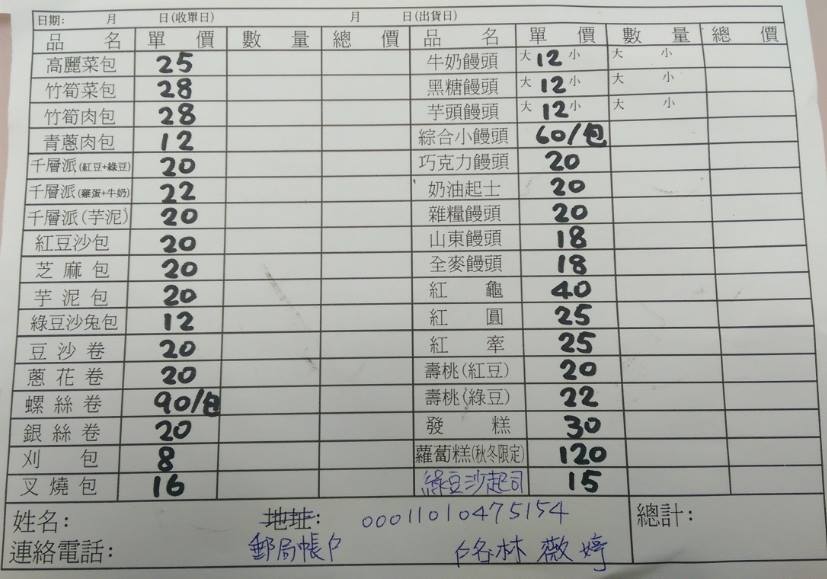 日期: 月 日(收單日) 月 日(出貨日)
品名 單價 數量 總價 品名 單價 數量 總價
高麗菜包 25 牛奶饅頭 大 12 小 大 小
竹筍菜包 28 黑糖饅頭 大 12 小 大 小
竹筍肉包 28 芋頭饅頭 大 12 小 大 小
青蔥肉包 12 綜合小饅頭 60/包
千層派(紅豆+綠豆) 20 巧克力饅頭 20
千層派(雞蛋+牛奶) 22 奶油起士 20
千層派(芋泥) 20 雜糧饅頭 20
紅豆沙包 20 山東饅頭 18
芝麻包 20 全麥饅頭 18
芋泥包 20 紅龜 40
綠豆沙兔包 12 紅圓 25
豆沙卷 20 紅牽 25
蔥花卷 20 壽桃(紅豆) 20
螺絲卷 90/包 壽桃(綠豆) 22
銀絲卷 20 發糕 30
刈包 8 蘿蔔糕(秋冬限定) 120
叉燒包 16 綠豆沙起司 15
姓名: 地址: 00011010475154 總計:
連絡電話: 郵局帳戶 戶名林薇婷